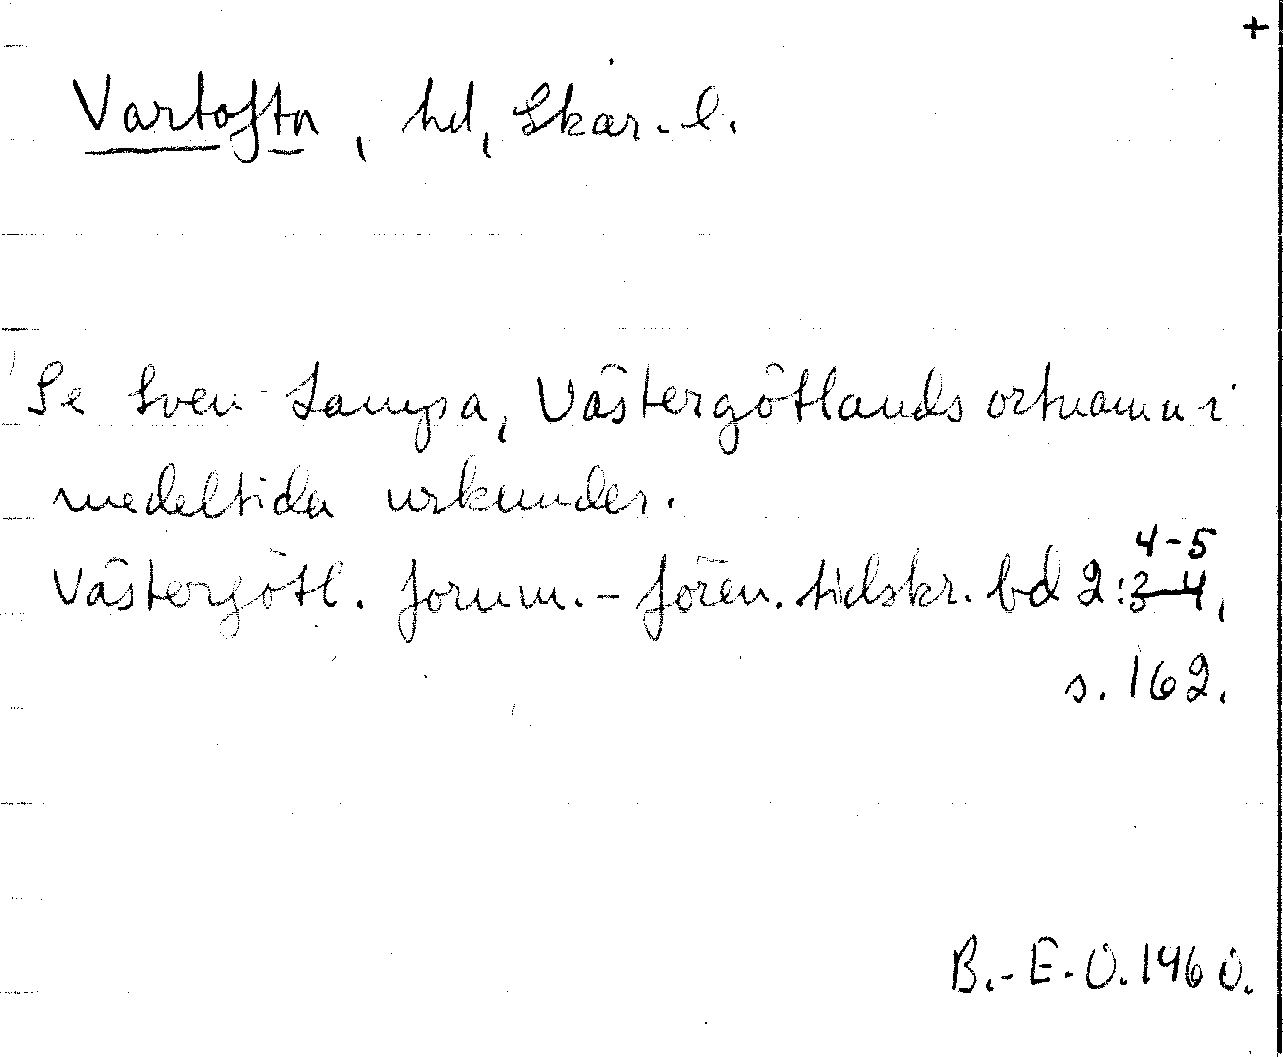 +
Vartofta, hd, Skar. l.
Se Sven Lampa, Västergötlands ortnamn i
medeltida urkunder.
4-5
Västergötl. fornm.-fören. tidskr. bd 2:3-4,
s. 162.
B.-E. O. 1960.